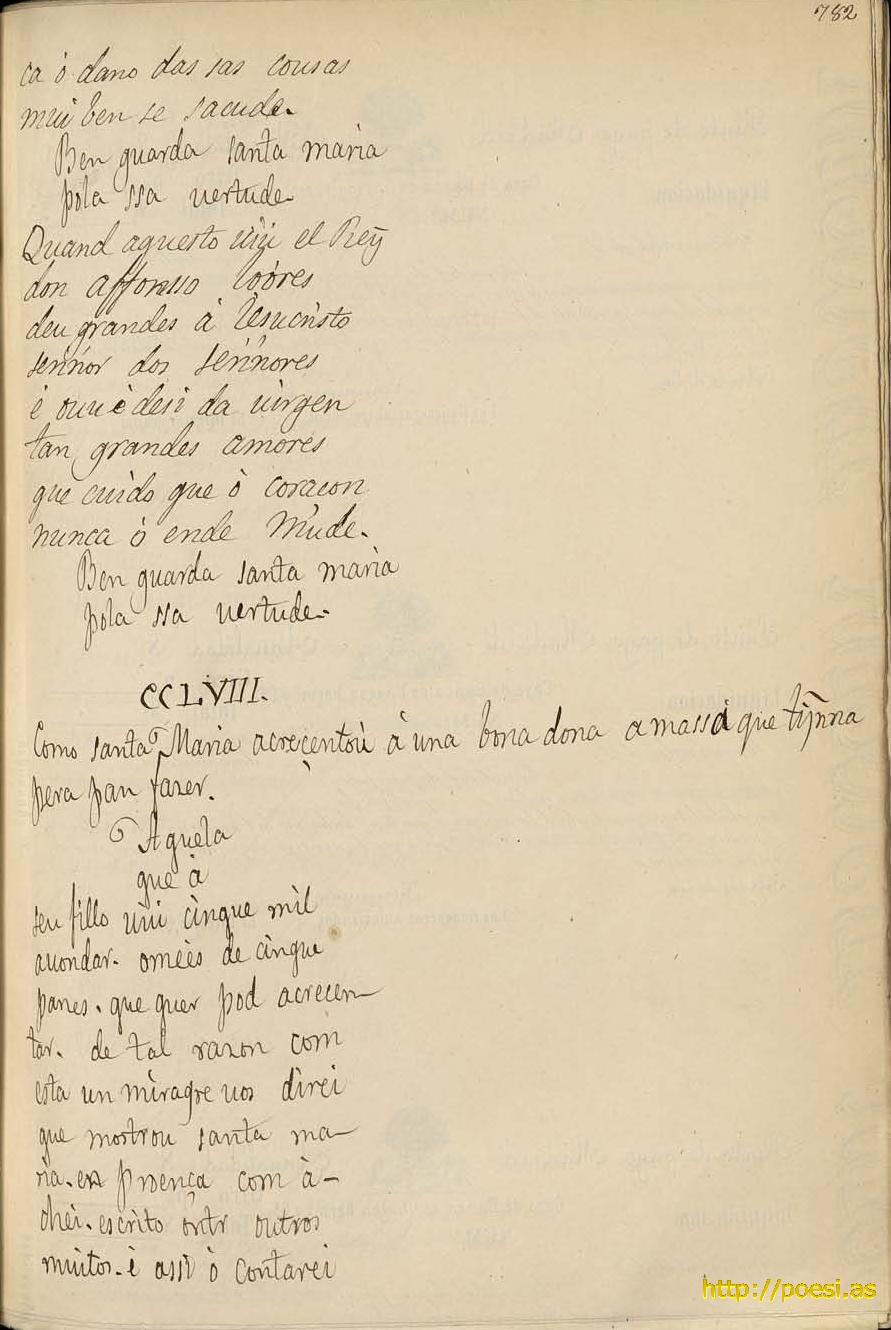 782
ca ò dano das sas cousas
mui ben se sacude.
Ben guarda santa maria
pola ssa vertude.
Quand aquesto uiu el Reỹ
don affonsso loores
deu grandes à Iesucristo
sennor dos sennores
è ouuè desi da uirgen
tan grandes amores
que cuido que ò coracon
nunca ò ende mude.
Ben guarda santa maria
pola ssa vertude.
CCLVIII.
Como santa Maria acreçentou à una bona dona a massa que tijnna
pera pan fazer.
Aquela
que à
seu fillo uiu cinque mil
auondar. omees de cinque
panes. que quer pod acrecen–
tar. de tal razon com
esta un miragre uos direi
que mostrou santa ma–
ria. en proença com à–
chei. escrito ontr outros
muitos. è assi ò contarei
http://poesi.as